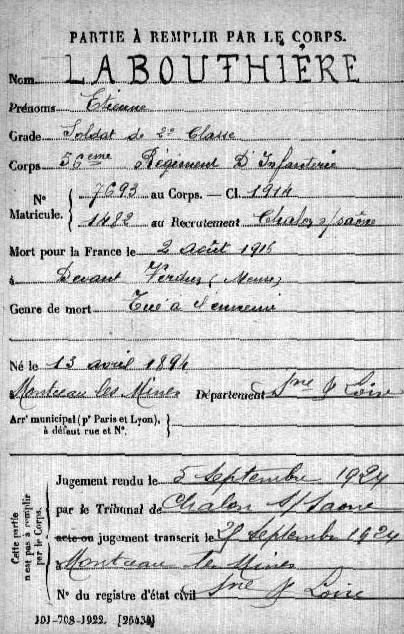 PARTIE À REMPLIR PAR LE CORPS.
Nom LABOUTHIÈRE
Prénoms Etienne
Grade Soldat de 2e Classe
Corps 56eme Régiment D'Infanterie
N° Matricule. { 7693 au Corps. — Cl. 1914
1482 au Recrutement Chalon s/saône
Mort pour la France le 2 août 1916
à Devant Verdun (Meuse)
Genre de mort Tué a l'ennemi
Né le 13 avril 1894
Montceau les Mines Département Sne & Loire
Arrt municipal (pr Paris et Lyon), à défaut rue et N°. }
Cette partie n'est pas à remplir par le Corps.
Jugement rendu le 5 Septembre 1924
par le Tribunal de Chalon S/Saone
acte ou jugement transcrit le Septembre 1924
à Montceau les Mines
N° du registre d'état civil Sne & Loire
101-708-1922. [26434]